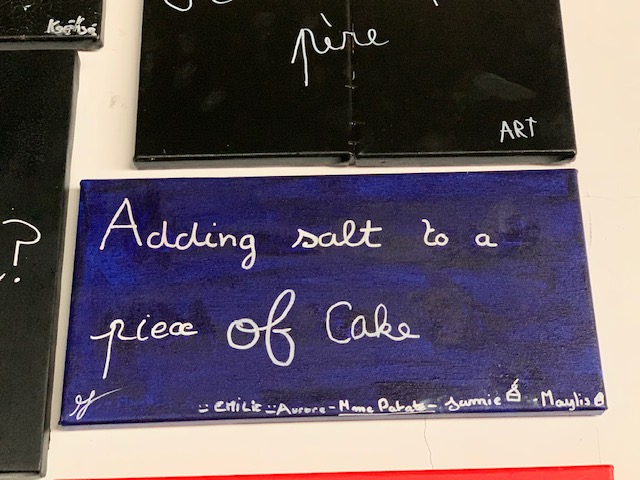 père
ART
?
Adding salt to a
piece of Cake
EMILIE - Aurore - Mme Patate - Jumie - Maylis